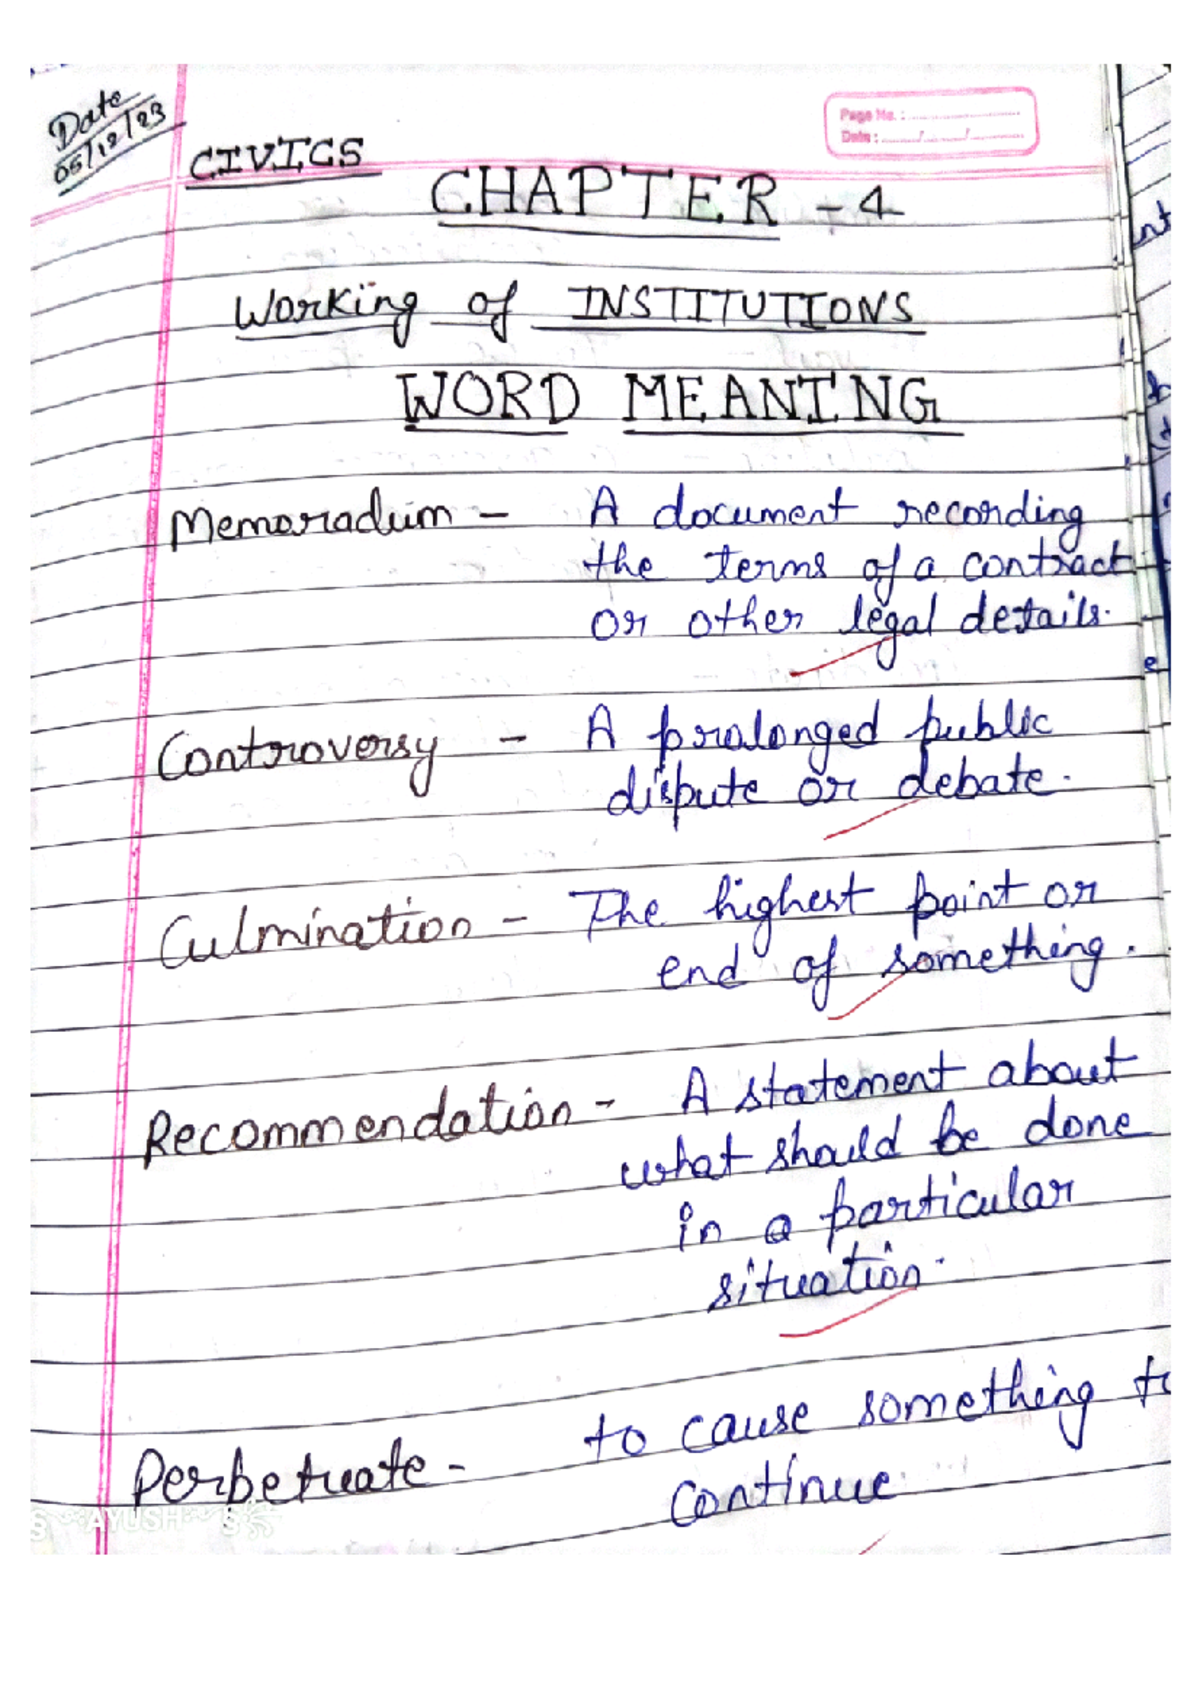 Date
05/12/23
Page No. :
Date : / /
CIVICS
CHAPTER - 4
Working of INSTITUTIONS
WORD MEANING
Memoradum - A document recording
the terms of a contract
or other legal details.
Controversy - A prolonged public
dispute or debate.
Culmination - The highest point or
end of something.
Recommendation - A statement about
what should be done
in a particular
situation.
Perbetuate - to cause something to
continue
AYUSH